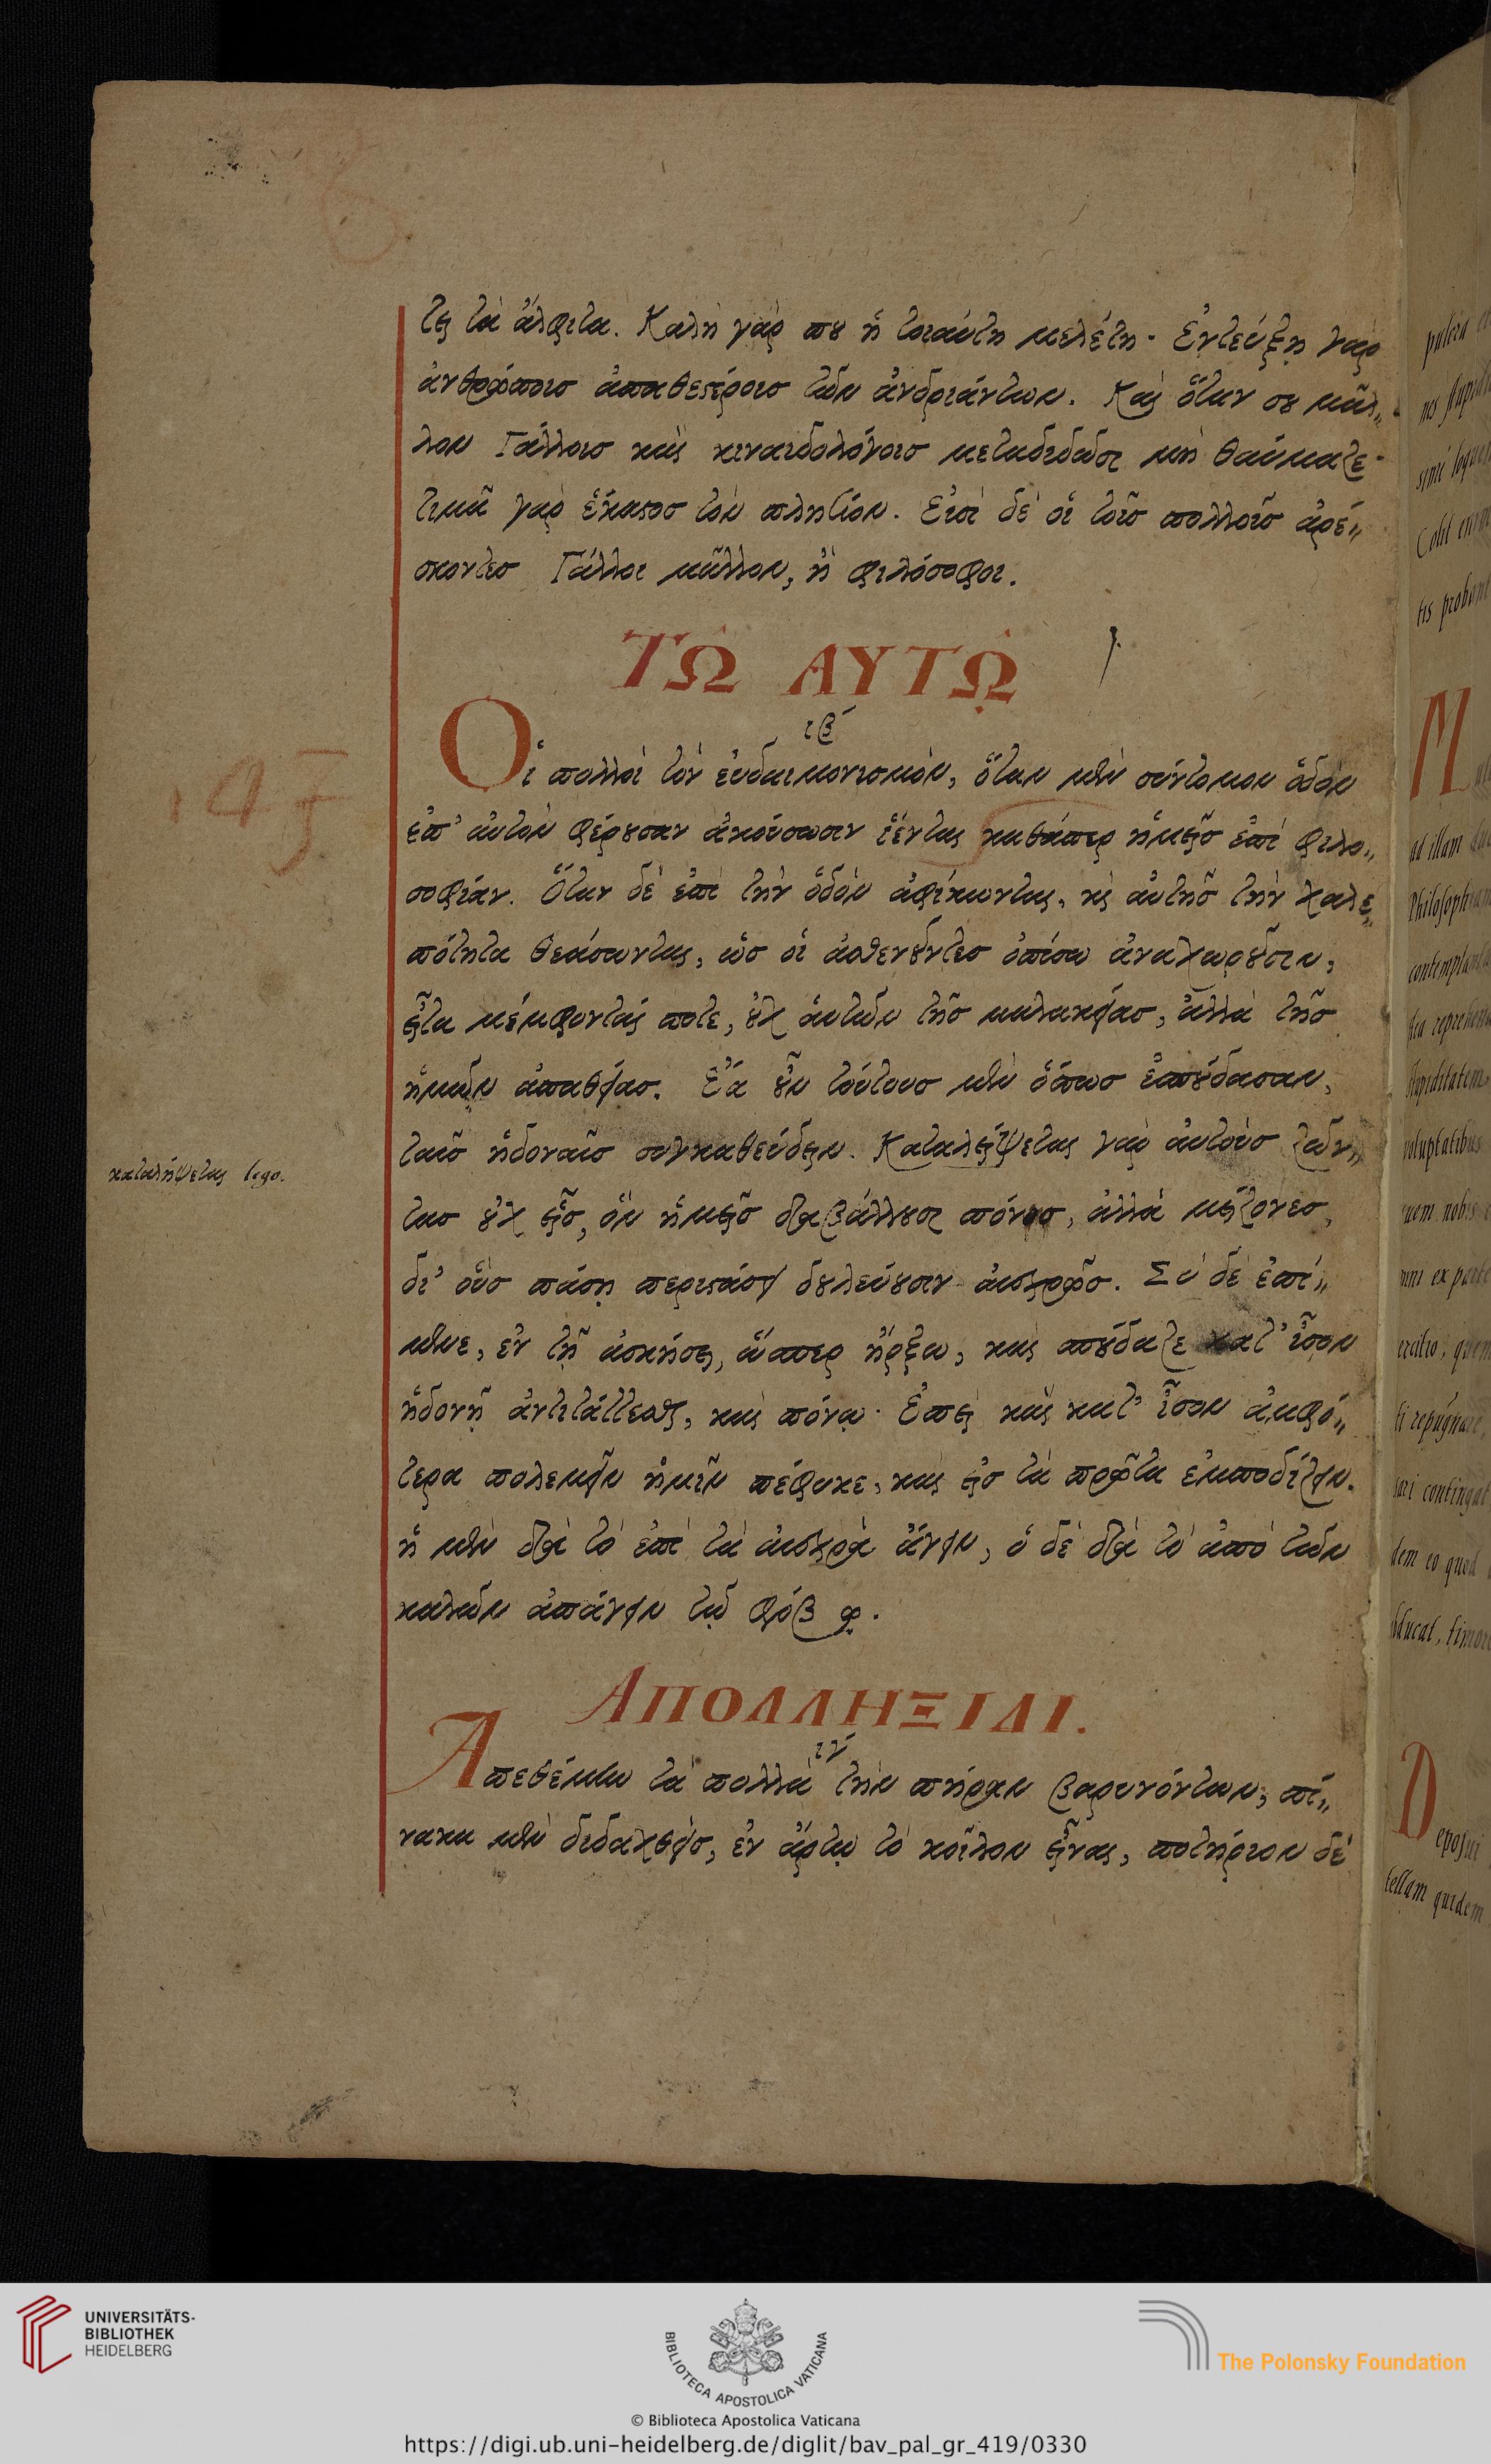 τει τὰ ἄλφιτα. Καλὴ γάρ που ἡ τοιαύτη μελέτη· Ἐντεύξῃ γὰρ
ἀνθρώποις ἀπαθεστέροις τῶν ἀνδριάντων. Καὶ ὅταν σου μᾶλ〃
λον Γάλλοις καὶ κιναιδολόγοις μεταδιδῶσι μὴ θαύμαζε·
τιμᾷ γὰρ ἕκαστος τὸν πλησίον. Εἰσὶ δὲ οἱ τοῖς πολλοῖς ἀρέ〃
σκοντες Γάλλοι μᾶλλον, ἢ φιλόσοφοι.
ΤΩ ΑΥΤΩ
ιβ
Οἱ πολλοὶ τὸν εὐδαιμονισμὸν, ὅταν μὲν σύντομον ὁδὸν
ἐπ' αὐτὸν φέρουσαν ἀκούσωσιν ἵενται καθάπερ ἡμεῖς ἐπὶ φιλο〃
σοφίαν. Ὅταν δὲ ἐπὶ τὴν ὁδὸν ἀφίκωνται, καὶ αὐτῆς τὴν χαλε〃
πότητα θεάσωνται, ὡς οἱ ἀσθενοῦντες ὀπίσω ἀναχωροῦσιν,
εἶτα μέμφονταί ποτε, οὐχ αὑτῶν τῆς μαλακίας, ἀλλὰ τῆς
ἡμῶν ἀπαθείας. Ἔα οὖν τούτους μὲν ὅπως ἐσπούδασαν,
ταῖς ἡδοναῖς συγκαθεύδειν. Καταλείψεται γὰρ αὐτοὺς ζῶν〃
τας οὐχ εἷς, ὃν ἡμεῖς διαβάλλουσι πόνος, ἀλλὰ μείζονες,
δι' οὓς πάσῃ περιστάσει δουλεύουσιν αἰσχρῶς. Σὺ δὲ ἐπί〃
μενε, ἐν τῇ ἀσκήσει, ὥσπερ ἤρξω, καὶ σπούδαζε κατ' ἶσον
ἡδονῇ ἀντιτάττεσθαι, καὶ πόνῳ· Ἐπεὶ καὶ κατ' ἶσον ἀμφό〃
τερα πολεμεῖν ἡμῖν πέφυκε, καὶ εἰς τὰ πρῶτα ἐμποδίζειν.
ἡ μὲν διὰ τὸ ἐπὶ τὰ αἰσχρὰ ἄγειν, ὁ δὲ διὰ τὸ ἀπὸ τῶν
καλῶν ἀπάγειν τῷ φόβῳ.
ΑΠΟΛΛΗΞΙΔΙ.
ιγ
Ἀπεθέμην τὰ πολλὰ τὴν πήραν βαρυνόντων, πί〃
νακα μὲν διδαχθεὶς, ἐν ἄρτῳ τὸ κοῖλον εἶναι, ποτήριον δὲ
καταλήψεται lego.
145
UNIVERSITÄTS-
BIBLIOTHEK
HEIDELBERG
BIBLIOTECA APOSTOLICA VATICANA
© Biblioteca Apostolica Vaticana
The Polonsky Foundation
https://digi.ub.uni-heidelberg.de/diglit/bav_pal_gr_419/0330